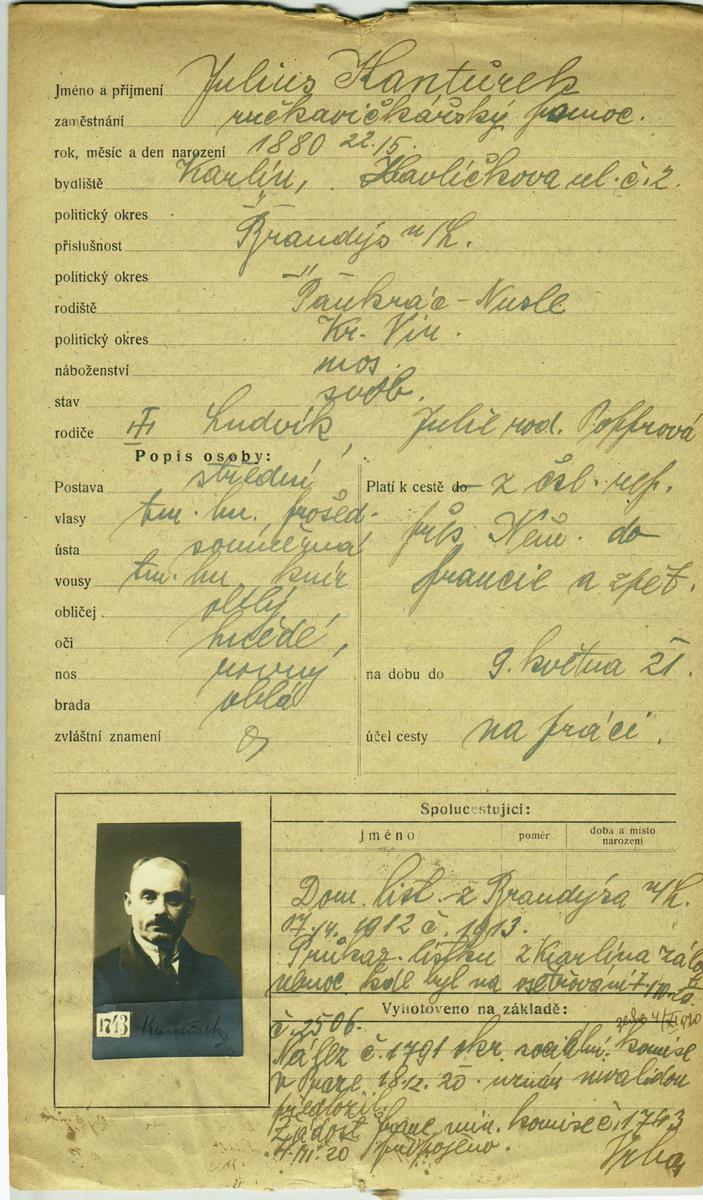 Jméno a příjmení Julius Kantůrek
zaměstnání ručkavičkářský pomoc.
rok, měsíc a den narození 1880 22./5.
bydliště Karlín, Havlíčkova ul. č. 2.
politický okres "
příslušnost Brandýs n/L.
politický okres "
rodiště Pankrác - Nusle
politický okres Kr. Vin.
náboženství mos.
stav svob.
rodiče Ludvík, Julie rod.
Popis osoby:
Postava střední
vlasy tm. hn. prošed.
ústa souměrná
vousy tm. hn. knír
obličej oblý
oči hnědé,
nos rovný
brada oblá
zvláštní znamení
Platí k cestě do z čsl. rep.
přes Něm. do
Francie a zpět.
na dobu do 9. května 21.
účel cesty na práci.
Spolucestující:
Jméno poměr doba a místo narození
Dom. list z Brandýsa n/L.
1912 č. 1913.
Průkaz. lístku z Karlína
kde byl na
Vyhotoveno na základě:
č. 2506.
Nález č. 1791 okr. sociální komise
v Praze 18.12. 20 uznán invalidou
předložil.
Žádost franc. min. komise č. 1743
20 připojeno.
Vrba
1743